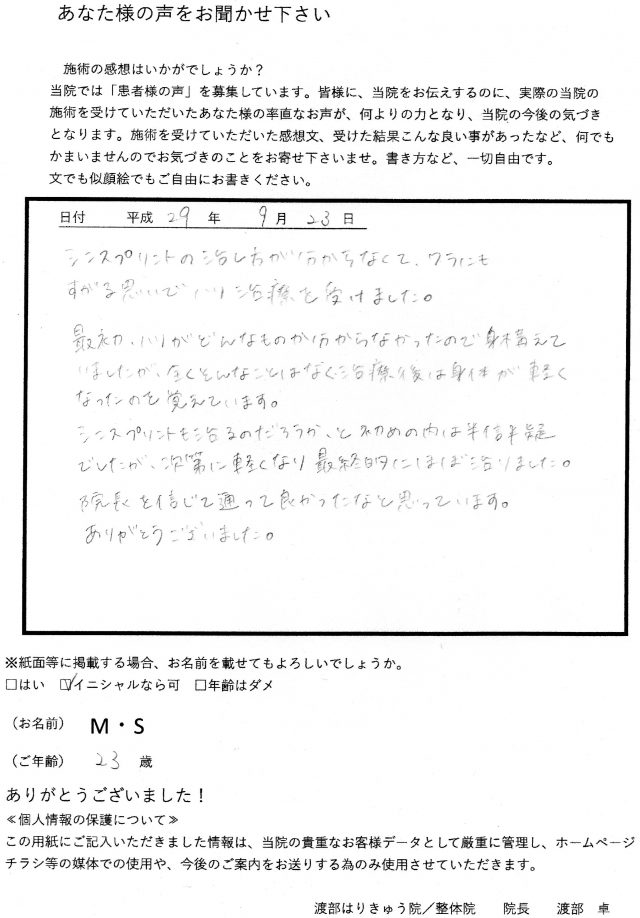 あなた様の声をお聞かせ下さい
施術の感想はいかがでしょうか？
当院では「患者様の声」を募集しています。皆様に、当院をお伝えするのに、実際の当院の
施術を受けていただいたあなた様の率直なお声が、何よりの力となり、当院の今後の気づき
となります。施術を受けていただいた感想文、受けた結果こんな良い事があったなど、何でも
かまいませんのでお気づきのことをお寄せ下さいませ。書き方など、一切自由です。
文でも似顔絵でもご自由にお書きください。
日付 平成 29 年 9 月 23 日
シンスプリントの治し方が分からなくて、ワラにも
すがる思いでハリ治療を受けました。
最初、ハリがどんなものか分からなかったので身構えて
いましたが、全くそんなことはなく治療後は身体が軽く
なったのを覚えています。
シンスプリントも治るのだろうか、と初めの内は半信半疑
でしたが、次第に軽くなり最終的にほぼ治りました。
院長を信じて通って良かったなと思っています。
ありがとうございました。
※紙面等に掲載する場合、お名前を載せてもよろしいでしょうか。
□はい ☑イニシャルなら可 □年齢はダメ
（お名前） M・S
（ご年齢） 23 歳
ありがとうございました！
≪個人情報の保護について≫
この用紙にご記入いただきました情報は、当院の貴重なお客様データとして厳重に管理し、ホームページ
チラシ等の媒体での使用や、今後のご案内をお送りする為のみ使用させていただきます。
渡部はりきゅう院／整体院 院長 渡部 卓